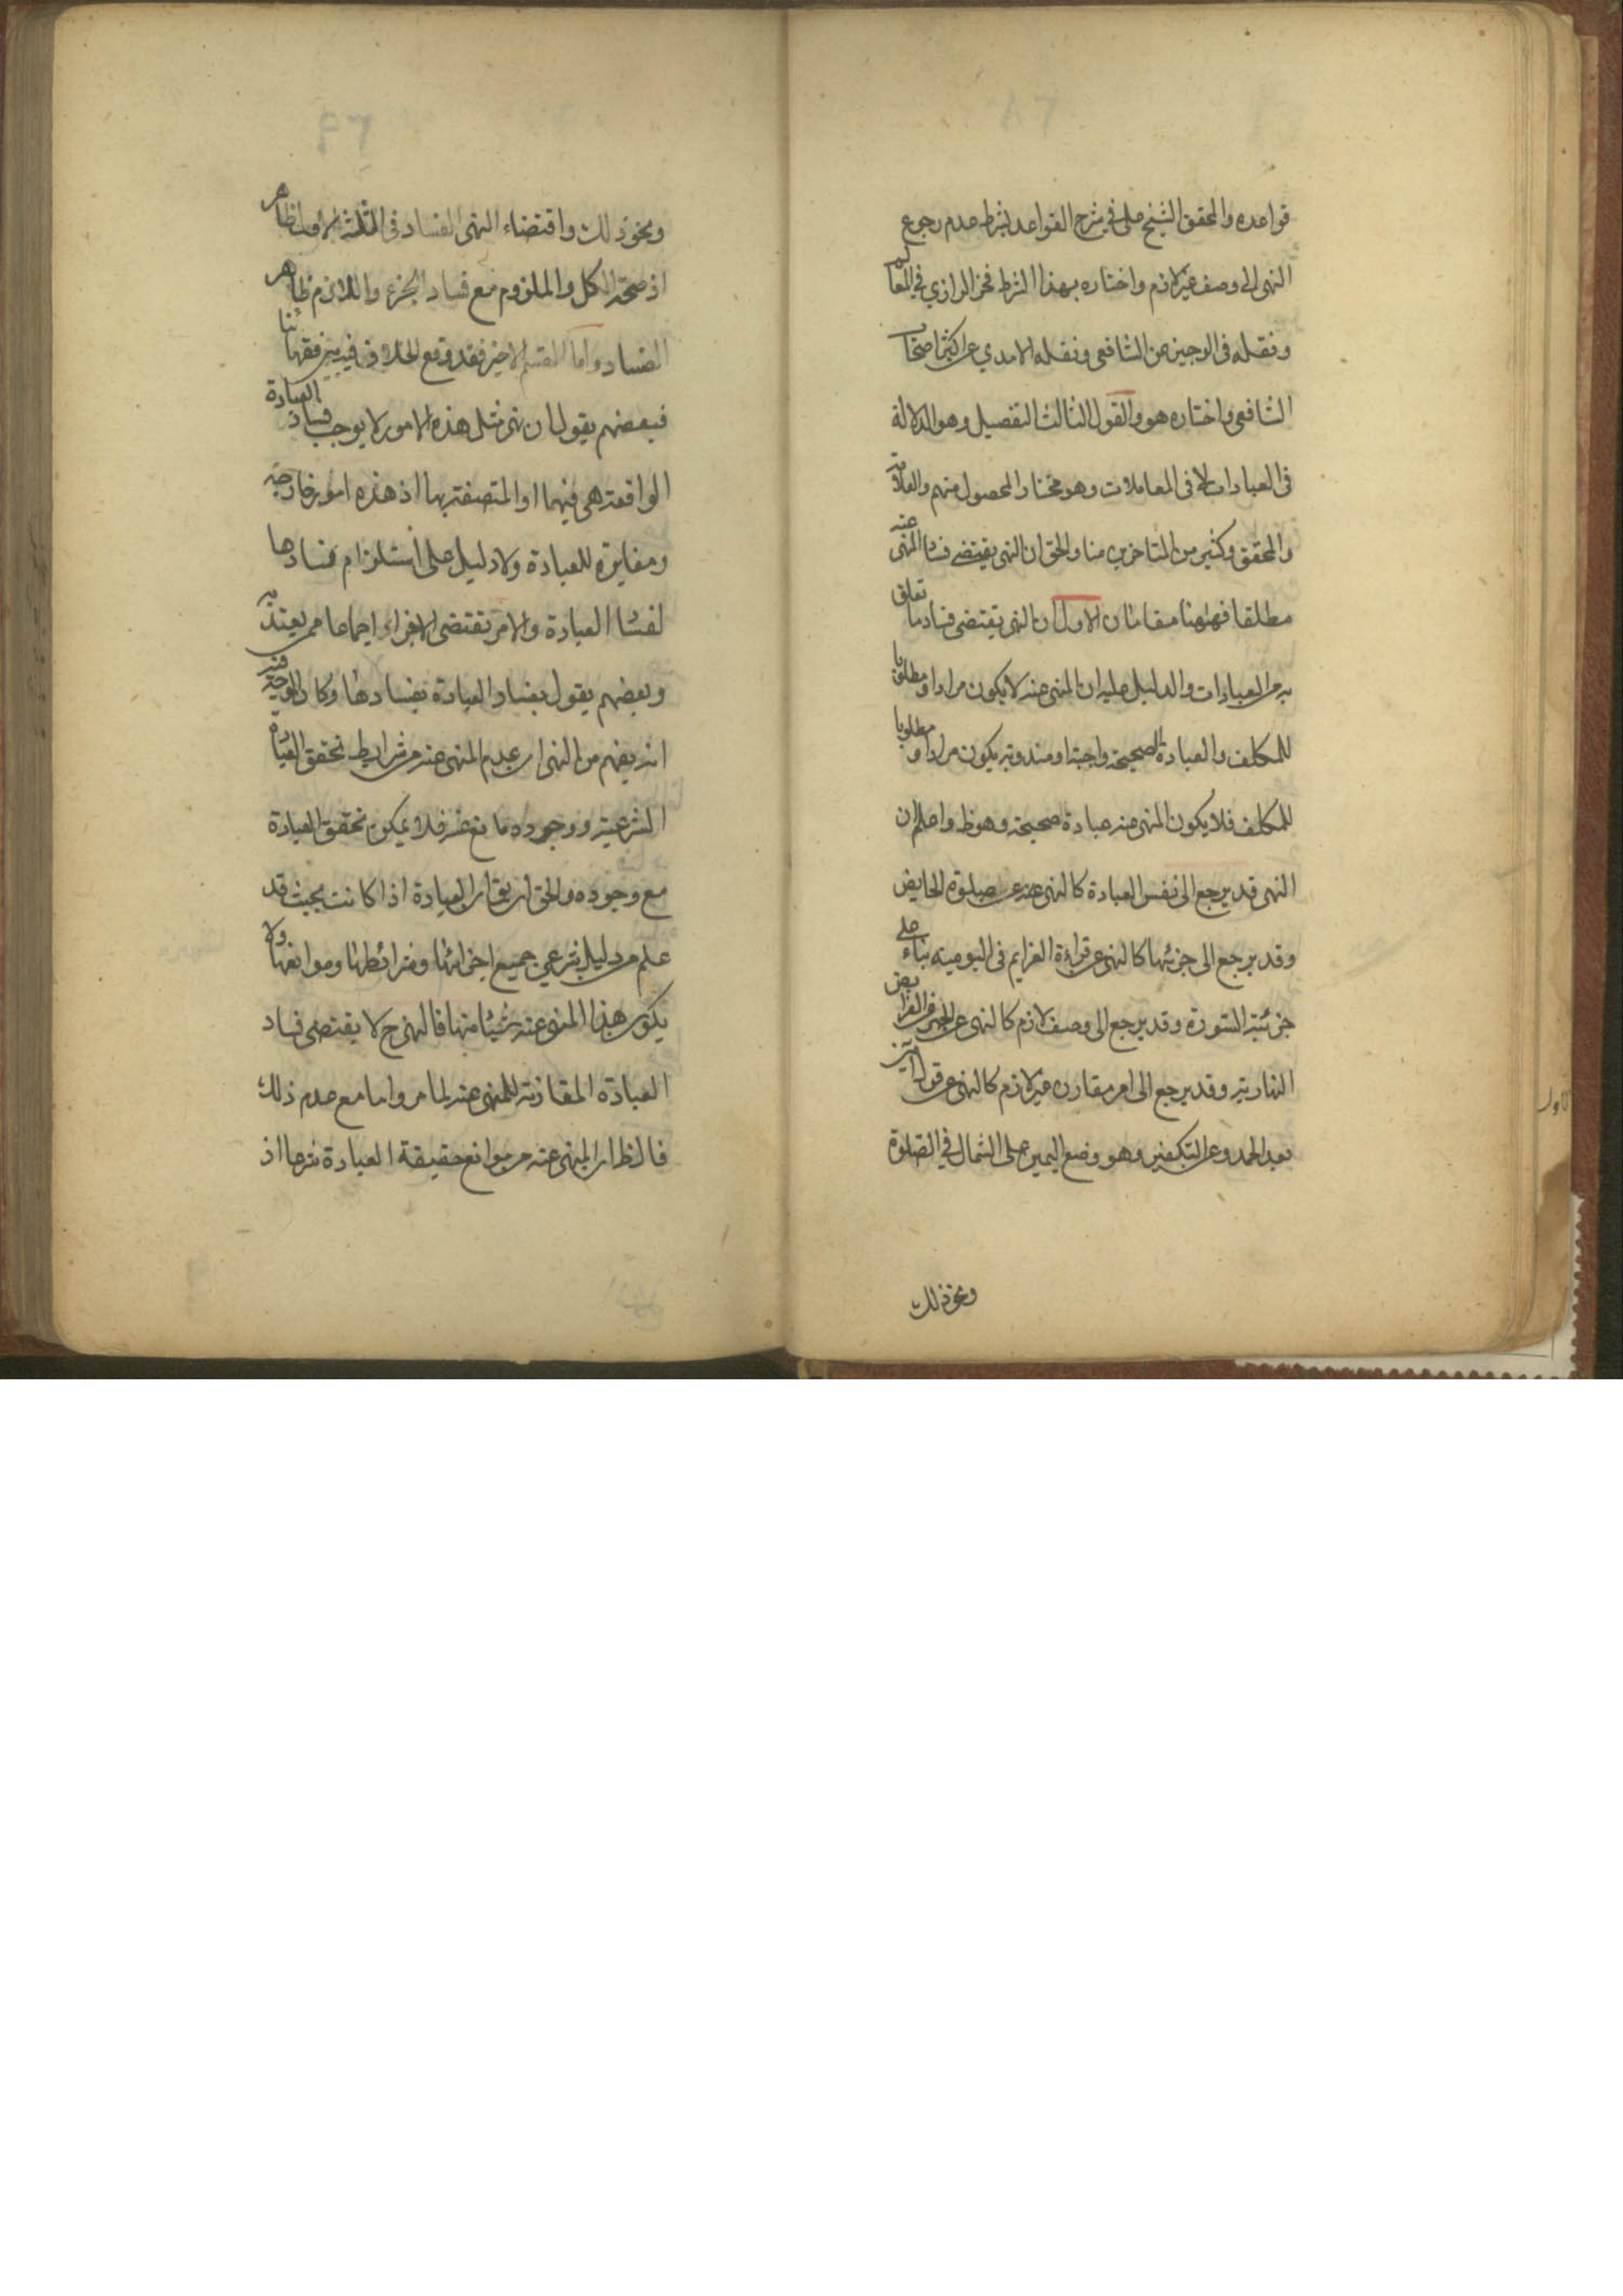 قواعده والمحقق الشيخ على في شرح القواعد بشرط عدم رجوع
النهى الى وصف غير لازم واختاره بهذا الشرط فخر الرازي في المعالم
ونقله في الوجيز عن الشافعى ونقله الامدي عن اكثر اصحاب
الشافعى واختاره هو والقول الثالث التفصيل وهو الدلالة
في العبادات لا في المعاملات وهو مختار المحصول منهم والعلامة
والمحقق وكثير من المتاخرين منا والحق ان النهى يقتضى فساد المنهى عنه
مطلقا فههنا مقامان الاول ان النهى يقتضى فساد ما تعلق
به من العبادات والدليل عليه ان المنهى عنه لا يكون مرادا ومطلوبا
للمكلف والعبادة الصحيحة واجبة او مندوبة يكون مرادا ومطلوبا
للمكلف فلا يكون المنهى عنه عبادة صحيحة وهو ظ واعلم ان
النهى قد يرجع الى نفس العبادة كالنهى عنه عن صلوة الحايض
وقد يرجع الى جزئها كالنهى عن قراءة العزايم في اليومية بناء على
جزئية السورة وقد يرجع الى وصف لازم كالنهى عن الجهر في الفرايض
النهارية وقد يرجع الى امر مقارن غير لازم كالنهى عن قول امين
بعد الحمد وعن التكفير وهو وضع اليمين على الشمال في الصلوة
ونحو ذلك
ونحو ذلك واقتضاء النهى الفساد في الثلثة الاول ظاهر
اذ صحة الكل والملزوم مع فساد الجزء واللازم ظاهر
الفساد واما القسم الاخير فقد وقع الخلاف فيه بين فقهائنا
فبعضهم يقول ان نهى مثل هذه الامور لا يوجب فساد العبادة
الواقعة هى فيها او المتصفة بها اذ هذه امور خارجة
ومغايرة للعبادة ولا دليل على استلزام فسادها
لفساد العبادة والامر يقتضى الاجزاء اجماعا ممن يعتد به
وبعضهم يقول بفساد العبادة بفسادها وكان الوجه فيه
انه يفهم من النهى ان عدم المنهى عنه من شرايط تحقق العبادة
الشرعية ووجوده مانع عنه فلا يمكن تحقق العبادة
مع وجوده والحق ان يق ان العبادة اذا كانت بحيث قد
علم من دليل شرعي جميع اجزائها وشرائطها وموانعها ولا
يكون هذا المنهى عنه شيئا منها فالنهى ح لا يقتضى فساد
العبادة المقارنة للمنهى عنه لما مر واما مع عدم ذلك
فالظ ان المنهى عنه من موانع حقيقة العبادة شرعا اذ